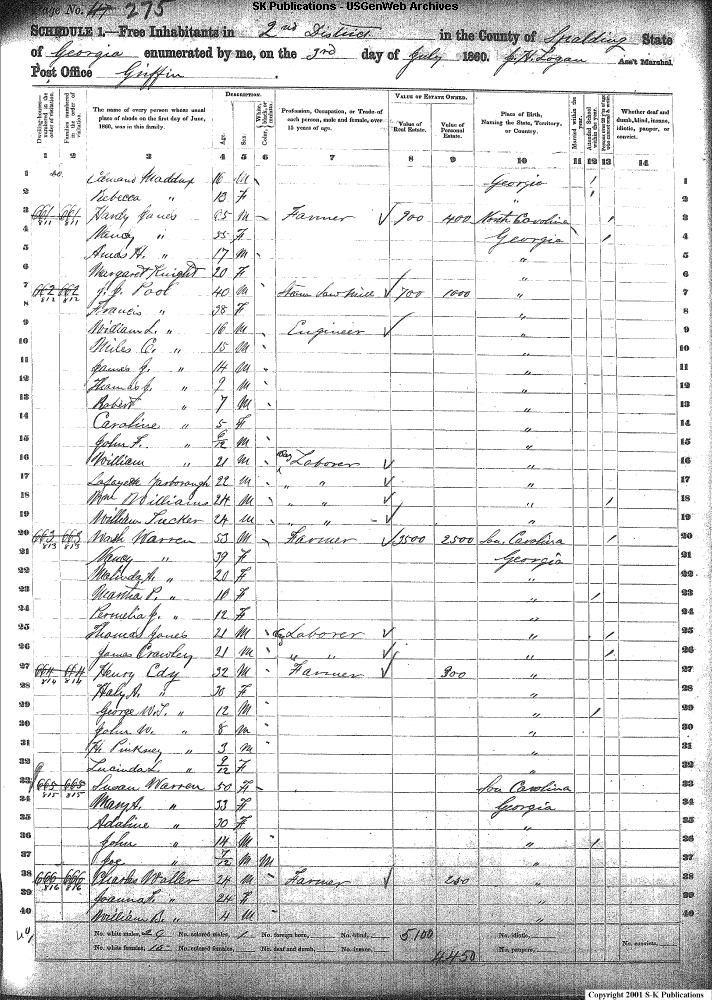 SK Publications - USGenWeb Archives
Page No. 47 275
SCHEDULE 1.—Free Inhabitants in 2nd District in the County of Spalding State
of Georgia enumerated by me, on the 3rd day of July 1860. Ass't Marshal.
Post Office Griffin
DESCRIPTION. VALUE OF ESTATE OWNED.
Dwelling-houses—numbered in the order of visitation. Families numbered in the order of visitation. The name of every person whose usual place of abode on the first day of June, 1860, was in this family. Age. Sex. Color, White, black, or mulatto. Profession, Occupation, or Trade of each person, male and female, over 15 years of age. Value of Real Estate. Value of Personal Estate. Place of Birth, Naming the State, Territory, or Country. Married within the year. Attended School within the year. Whether deaf and dumb, blind, insane, idiotic, pauper, or convict.
1 2 3 4 5 6 7 8 9 10 11 12 13 14
1 Edmund Maddux 16 M Georgia / 1
2 Rebecca " 13 F " / 2
3 661 661 811 811 Hardy Jones 65 M Farmer 900 400 North Carolina / 3
4 Nancy " 55 F Georgia / 4
5 Amos H. " 17 M " 5
6 Margaret Knight 20 F " 6
7 662 662 812 812 J. J. Pool 40 M Steam Saw Mill 700 1000 " 7
8 Francis " 38 F " 8
9 William L. " 16 M Engineer " 9
10 Miles C. " 15 M " 10
11 James J. " 14 M " 11
12 Thomas J. " 9 M " 12
13 Robert " 7 M " 13
14 Caroline " 5 F " 14
15 John F. " 6/12 M " 15
16 William " 21 M Day Laborer " 16
17 Lafayette Yarborough 22 M " " " 17
18 Wm Williams 24 M " " " / 18
19 William Tucker 24 M " " " 19
20 663 663 813 813 Wash Warren 53 M Farmer 3500 2500 Sou Carolina / 20
21 Nancy " 39 F Georgia 21
22 Malinda A. " 20 F " 22
23 Martha P. " 18 F " / 23
24 Permelia J. " 12 F " 24
25 Thomas Jones 21 M Day Laborer " / 25
26 James Crawley 21 M " " " / 26
27 664 664 814 814 Henry Edy 32 M Farmer 300 " 27
28 Haly A. " 30 F " 28
29 George W. T. " 12 M " / 29
30 John W. " 8 M " 30
31 H. Pinkney " 3 M " 31
32 Lucinda L. " 9/12 F " 32
33 665 665 815 815 Susan Warren 50 F Sou Carolina 33
34 Mary A. " 33 F Georgia 34
35 Adaline " 30 F " 35
36 John " 14 M " / 36
37 Joe " 7/12 M M " 37
38 666 666 816 816 Charles Waller 24 M Farmer 250 " 38
39 Joanna F. " 24 F " 39
40 William B. " 4 M " 40
No. white males, No. colored males, 1 No. foreign born, No. blind, 5100 No. idiotic,
No. white females, No. colored females, No. deaf and dumb, No. insane, 4450 No. paupers, No. convicts,
Copyright 2001 S-K Publications